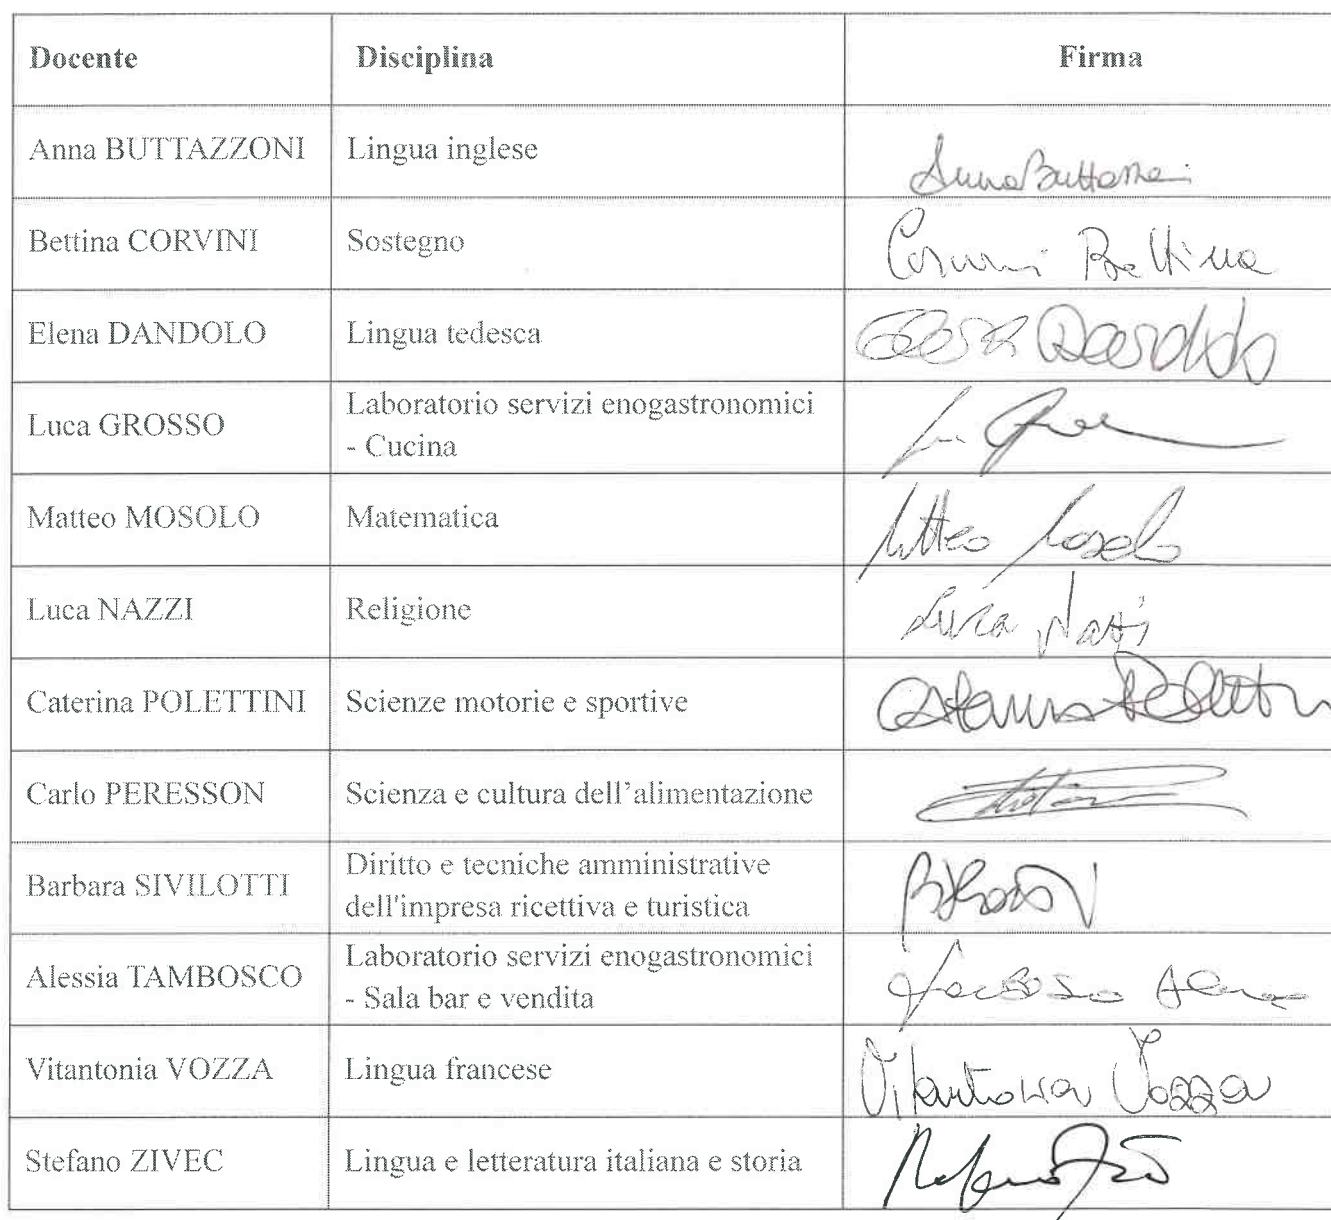 Docente Disciplina Firma
Anna BUTTAZZONI Lingua inglese
Bettina CORVINI Sostegno Corvini Bettina
Elena DANDOLO Lingua tedesca Elena Dandolo
Luca GROSSO Laboratorio servizi enogastronomici
- Cucina
Matteo MOSOLO Matematica Matteo Mosolo
Luca NAZZI Religione Luca Nazzi
Caterina POLETTINI Scienze motorie e sportive
Carlo PERESSON Scienza e cultura dell’alimentazione
Barbara SIVILOTTI Diritto e tecniche amministrative
dell'impresa ricettiva e turistica
Alessia TAMBOSCO Laboratorio servizi enogastronomici
- Sala bar e vendita
Vitantonia VOZZA Lingua francese Vitantonia Vozza
Stefano ZIVEC Lingua e letteratura italiana e storia